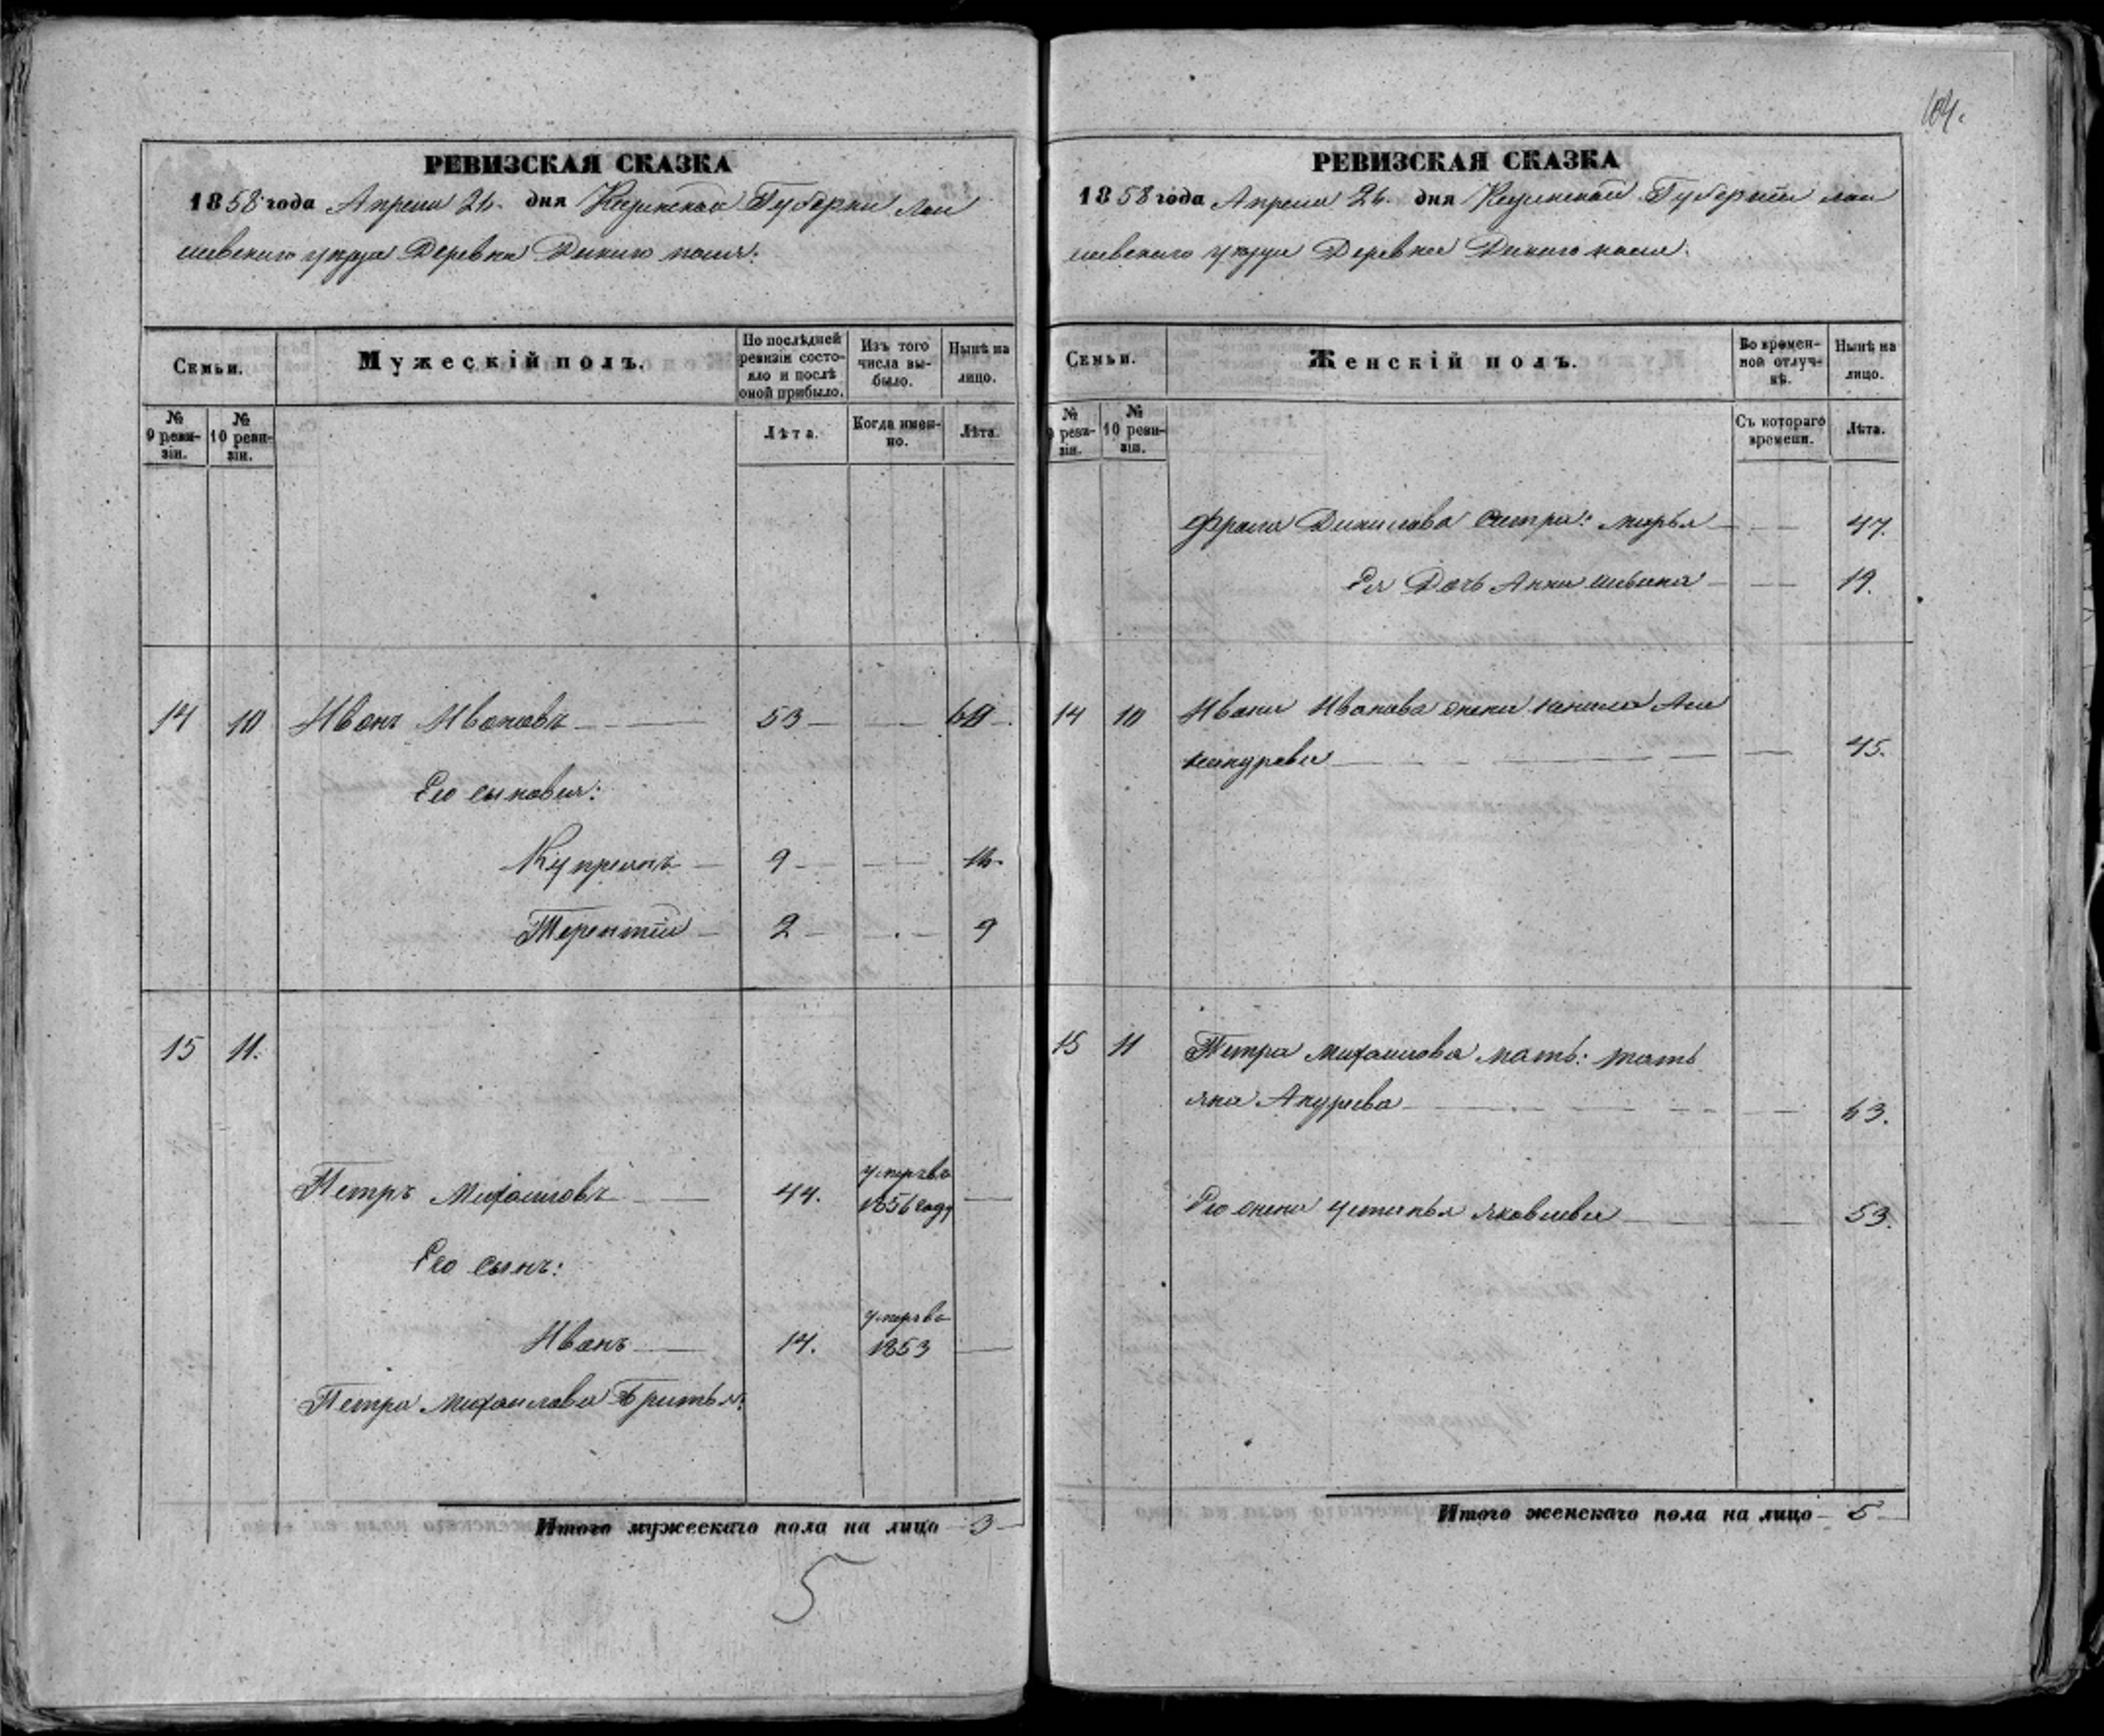 104.
РЕВИЗСКАЯ СКАЗКА
1858 года Апреля 26. дня Казанской Губернии Лаи
шевского уезда Деревни Дикого поля:
Семьи.
Мужескій полъ.
По послѣдней ревизіи состояло и послѣ оной прибыло.
Изъ того числа выбыло.
Нынѣ на лицо.
№ 9 ревизіи.
№ 10 ревизіи.
Лѣта.
Когда именно.
Лѣта.
14 10 Иванъ Ивановъ 53 60
Его сыновья:
Купреянъ 9 16.
Терентій 2 9
15 11.
Петръ Михаиловъ 44. умеръ въ 1856 году
Его сынъ:
Иванъ 14. умеръ в 1853
Петра Михаилова братья:
Итого мужескаго пола на лицо 3
5
РЕВИЗСКАЯ СКАЗКА
1858 года Апреля 26. дня Казанской Губерніи Лаи
шевского уезда Деревни Дикого поля:
Семьи.
Женскій полъ.
Во временной отлучкѣ.
Нынѣ на лицо.
№ 9 ревизіи.
№ 10 ревизіи.
Съ котораго времени.
Лѣта.
Фрола Данилова сестра: марья 47.
Ея Дочь Анна 19.
14 10 Ивана Иванова жена
45.
15 11 Петра Михаилова мать: тать
яна Андреева 63.
Его жена устинья яковлева 53.
Итого женскаго пола на лицо 5